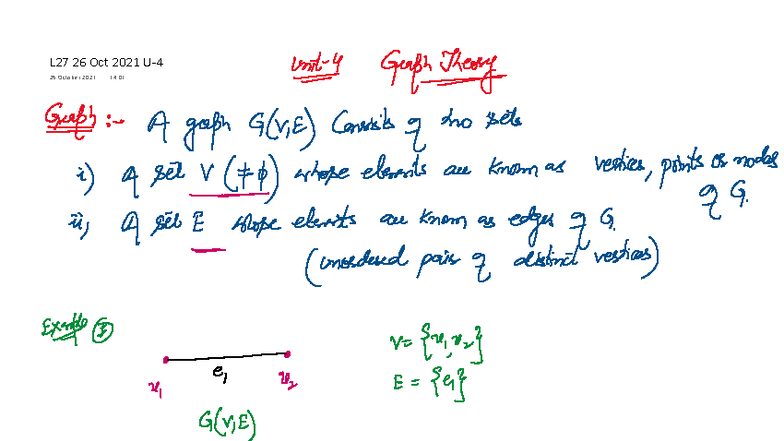 L27 26 Oct 2021 U-4
26 October 2021 14:01
Unit-4 Graph Theory
Graph :- A graph G(V,E) Consists of two sets
i) A set V (≠ϕ) whose elements are known as vertices, points or nodes of G.
ii) A set E whose elements are known as edges of G.
(unordered pair of distinct vertices)
Example ① V = {v₁, v₂}
e₁ E = {e₁}
v₁ v₂
G(V,E)